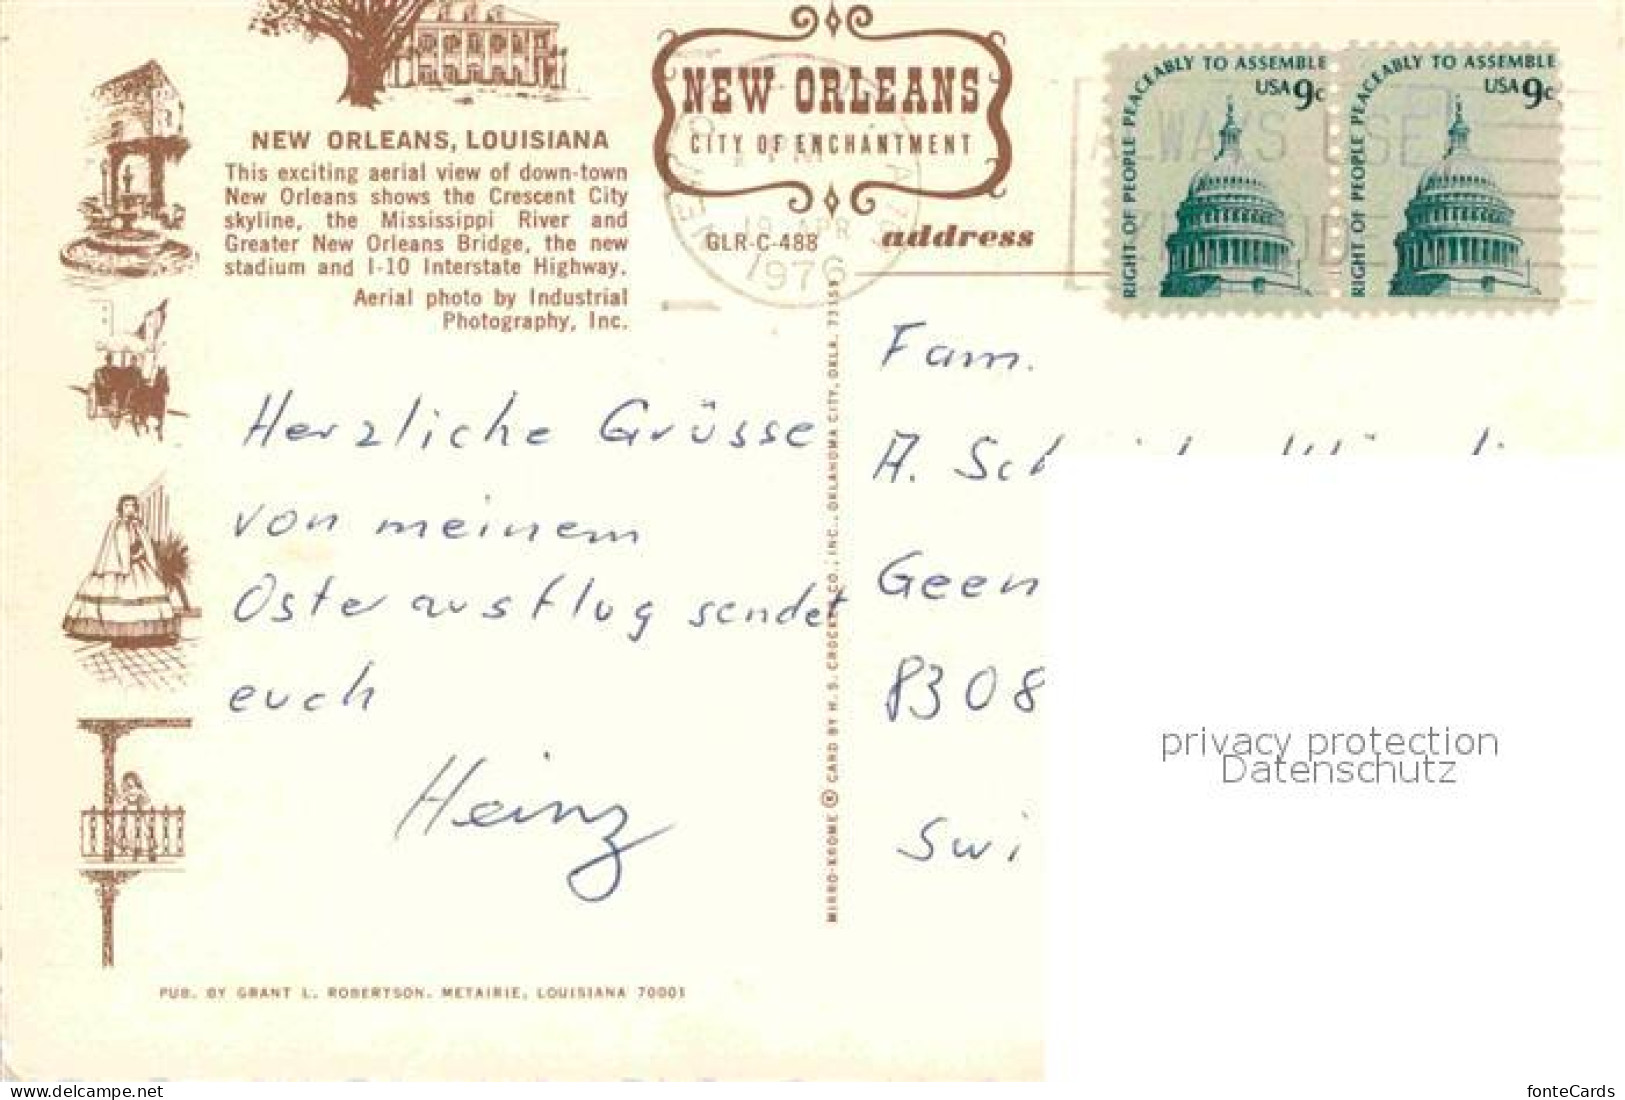 NEW ORLEANS, LOUISIANA
This exciting aerial view of down-town
New Orleans shows the Crescent City
skyline, the Mississippi River and
Greater New Orleans Bridge, the new
stadium and I-10 Interstate Highway.
Aerial photo by Industrial
Photography, Inc.
NEW ORLEANS
CITY OF ENCHANTMENT
GLR-C-488
address
18 APR
1976
ALWAYS USE
RIGHT OF PEOPLE PEACEABLY TO ASSEMBLE
USA 9c
RIGHT OF PEOPLE PEACEABLY TO ASSEMBLE
USA 9c
Herzliche Grüsse
von meinem
Osterausflug sendet
euch
Heinz
MIRRO-KROME ® CARD BY H. S. CROCKER CO., INC., OKLAHOMA CITY, OKLA. 73159
Fam.
A. Sch
Geen
8308
Swi
privacy protection
Datenschutz
PUB. BY GRANT L. ROBERTSON. METAIRIE, LOUISIANA 70001
fonteCards